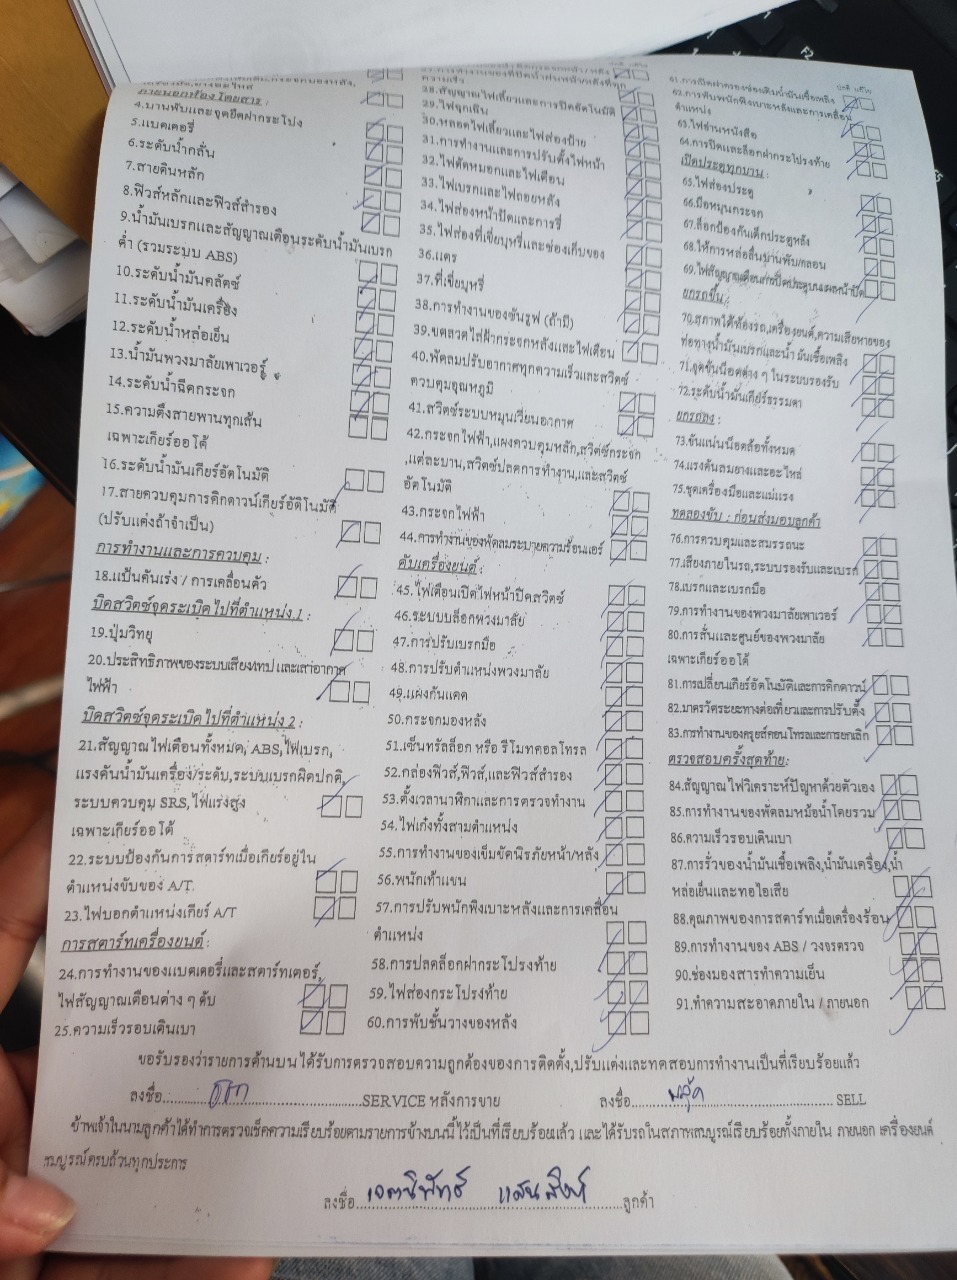 ภายนอกห้องโดยสาร :
4.บานพับและจุดยึดฝากระโปง
5.แบตเตอรี่
6.ระดับน้ำกลั่น
7.สายดินหลัก
8.ฟิวส์หลักและฟิวส์สำรอง
9.น้ำมันเบรกและสัญญาณเตือนระดับน้ำมันเบรก
ต่ำ (รวมระบบ ABS)
10.ระดับน้ำมันคลัตซ์
11.ระดับน้ำมันเครื่อง
12.ระดับน้ำหล่อเย็น
13.น้ำมันพวงมาลัยเพาเวอร์
14.ระดับน้ำฉีดกระจก
15.ความตึงสายพานทุกเส้น
เฉพาะเกียร์ออโต้
16.ระดับน้ำมันเกียร์อัตโนมัติ
17.สายควบคุมการคิกดาวน์เกียร์อัติโนมัติ
(ปรับแต่งถ้าจำเป็น)
การทำงานและการควบคุม :
18.แป้นคันเร่ง / การเคลื่อนตัว
บิดสวิตซ์จุดระเบิดไปที่ตำแหน่ง 1 :
19.ปุ่มวิทยุ
20.ประสิทธิภาพของระบบเสียง/เทป และเสาอากาศ
ไฟฟ้า
บิดสวิตซ์จุดระเบิดไปที่ตำแหน่ง 2 :
21.สัญญาณไฟเตือนทั้งหมด, ABS,ไฟเบรก,
แรงดันน้ำมันเครื่อง/ระดับ,ระบบเบรกผิดปกติ,
ระบบควบคุม SRS,ไฟแรงสูง
เฉพาะเกียร์ออโต้
22.ระบบป้องกันการสตาร์ทเมื่อเกียร์อยู่ใน
ตำแหน่งขับของ A/T.
23.ไฟบอกตำแหน่งเกียร์ A/T
การสตาร์ทเครื่องยนต์ :
24.การทำงานของแบตเตอรี่และสตาร์ทเตอร์,
ไฟสัญญาณเตือนต่าง ๆ ดับ
25.ความเร็วรอบเดินเบา
28.สัญญาณไฟเลี้ยวและการปิดอัตโนมัติ
29.ไฟฉุกเฉิน
30.หลอดไฟเลี้ยวและไฟส่องป้าย
31.การทำงานและการปรับตั้งไฟหน้า
32.ไฟตัดหมอกและไฟเตือน
33.ไฟเบรกและไฟถอยหลัง
34.ไฟส่องหน้าปัดและการรี่
35.ไฟส่องที่เขี่ยบุหรี่และช่องเก็บของ
36.แตร
37.ที่เขี่ยบุหรี่
38.การทำงานของซันรูฟ (ถ้ามี)
39.ขดลวดไล่ฝ้ากระจกหลังและไฟเตือน
40.พัดลมปรับอากาศทุกความเร็วและสวิตซ์
ควบคุมอุณหภูมิ
41.สวิตซ์ระบบหมุนเวียนอากาศ
42.กระจกไฟฟ้า,แผงควบคุมหลัก,สวิตซ์กระจก
,แต่ละบาน,สวิตซ์ปลดการทำงาน,และสวิตซ์
อัตโนมัติ
43.กระจกไฟฟ้า
44.การทำงานของพัดลมระบายความร้อนแอร์
ดับเครื่องยนต์ :
45.ไฟเตือนเปิดไฟหน้าปิดสวิตซ์
46.ระบบบล็อกพวงมาลัย
47.การปรับเบรกมือ
48.การปรับตำแหน่งพวงมาลัย
49.แผงกันแดด
50.กระจกมองหลัง
51.เซ็นทรัลล็อก หรือ รีโมทคอลโทรล
52.กล่องฟิวส์,ฟิวส์,และฟิวส์สำรอง
53.ตั้งเวลานาฬิกาและการตรวจทำงาน
54.ไฟเก๋งทั้งสามตำแหน่ง
55.การทำงานของเข็มขัดนิรภัยหน้า/หลัง
56.พนักเท้าแขน
57.การปรับพนักพิงเบาะหลังและการเคลื่อน
ตำแหน่ง
58.การปลดล็อกฝากระโปรงท้าย
59.ไฟส่องกระโปรงท้าย
60.การพับชั้นวางของหลัง
62.การพับพนักพิงเบาะหลังและการเคลื่อน
ตำแหน่ง
63.ไฟอ่านหนังสือ
64.การปิดและล็อกฝากระโปรงท้าย
เปิดประตูทุกบาน :
65.ไฟส่องประตู
66.มือหมุนกระจก
67.ล็อกป้องกันเด็กประตูหลัง
68.ให้การหล่อลื่นบานพับ/กลอน
69.ไฟสัญญาณเตือนการปิดประตูบนแผงหน้าปัด
ยกรถขึ้น :
70.สภาพใต้ท้องรถ,เครื่องยนต์,ความเสียหายของ
ท่อทางน้ำมันเบรกและน้ำมันเชื้อเพลิง
71.จุดขันน็อตต่าง ๆ ในระบบรองรับ
72.ระดับน้ำมันเกียร์ธรรมดา
ยกรถลง :
73.ขันแน่นน็อตล้อทั้งหมด
74.แรงดันลมยางและอะไหล่
75.ชุดเครื่องมือและแม่แรง
ทดลองขับ : ก่อนส่งมอบลูกค้า
76.การควบคุมและสมรรถนะ
77.เสียงภายในรถ,ระบบรองรับและเบรก
78.เบรกและเบรกมือ
79.การทำงานของพวงมาลัยเพาเวอร์
80.การสั่นและศูนย์ของพวงมาลัย
เฉพาะเกียร์ออโต้
81.การเปลี่ยนเกียร์อัตโนมัติและการคิกดาวน์
82.มาตรวัดระยะทางต่อเที่ยวและการปรับตั้ง
83.การทำงานของครุยส์คอนโทรลและการยกเลิก
ตรวจสอบครั้งสุดท้าย:
84.สัญญาณ ไฟวิเคราะห์ปัญหาด้วยตัวเอง
85.การทำงานของพัดลมหม้อน้ำโดยรวม
86.ความเร็วรอบเดินเบา
87.การรั่วของน้ำมันเชื้อเพลิง,น้ำมันเครื่อง,น้ำ
หล่อเย็นและทอไอเสีย
88.คุณภาพของการสตาร์ทเมื่อเครื่องร้อน
89.การทำงานของ ABS / วงจรตรวจ
90.ช่องมองสารทำความเย็น
91.ทำความสะอาดภายใน / ภายนอก
ขอรับรองว่ารายการด้านบนได้รับการตรวจสอบความถูกต้องของการติดตั้ง,ปรับแต่งและทดสอบการทำงานเป็นที่เรียบร้อยแล้ว
ลงชื่อ SERVICE หลังการขาย ลงชื่อ SELL
ข้าพเจ้าในนามลูกค้าได้ทำการตรวจเช็คความเรียบร้อยตามรายการข้างบนนี้ไว้เป็นที่เรียบร้อยแล้ว และได้รับรถในสภาพสมบูรณ์เรียบร้อยทั้งภายใน ภายนอก เครื่องยนต์
สมบูรณ์ครบถ้วนทุกประการ
ลงชื่อ เจตนิพัทธ์ แสนสิงห์ ลูกค้า